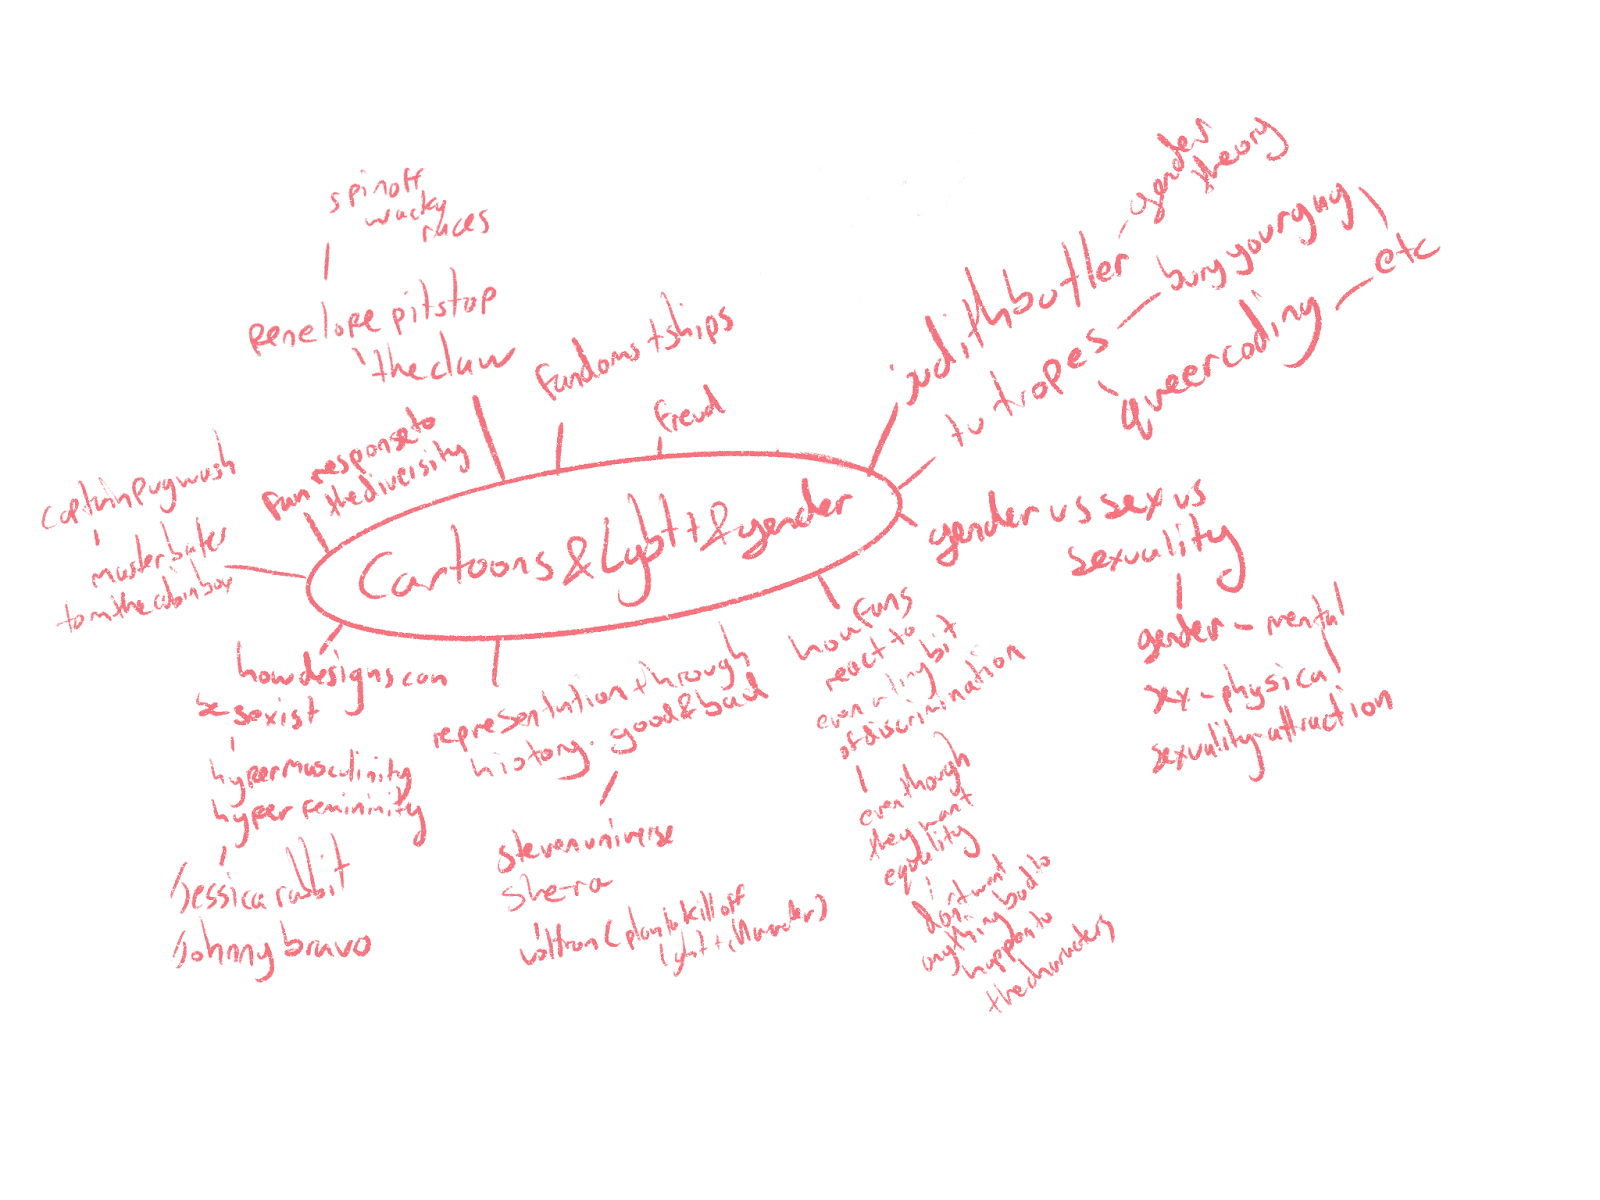 Cartoons & Lgbt+ & gender
judith butler
gender
theory
tv tropes
bury your gay
queer coding
etc
gender vs sex vs
sexuality
gender - mental
sex - physical
sexuality - attraction
how fans
react to
even a tiny bit
of discrimination
even though
they want
equality
don't want
anything bad to
happen to
the characters
representation through
history. good & bad
steven universe
she-ra
voltron (plan to kill off
lgbt+ character)
how designs can
be sexist
hyper masculinity
hyper femininity
Jessica rabbit
Johnny bravo
captain pugwash
master bater
tom the cabin boy
fan response to
the diversity
spinoff
wacky
races
penelope pitstop
the claw
fandoms + ships
freud